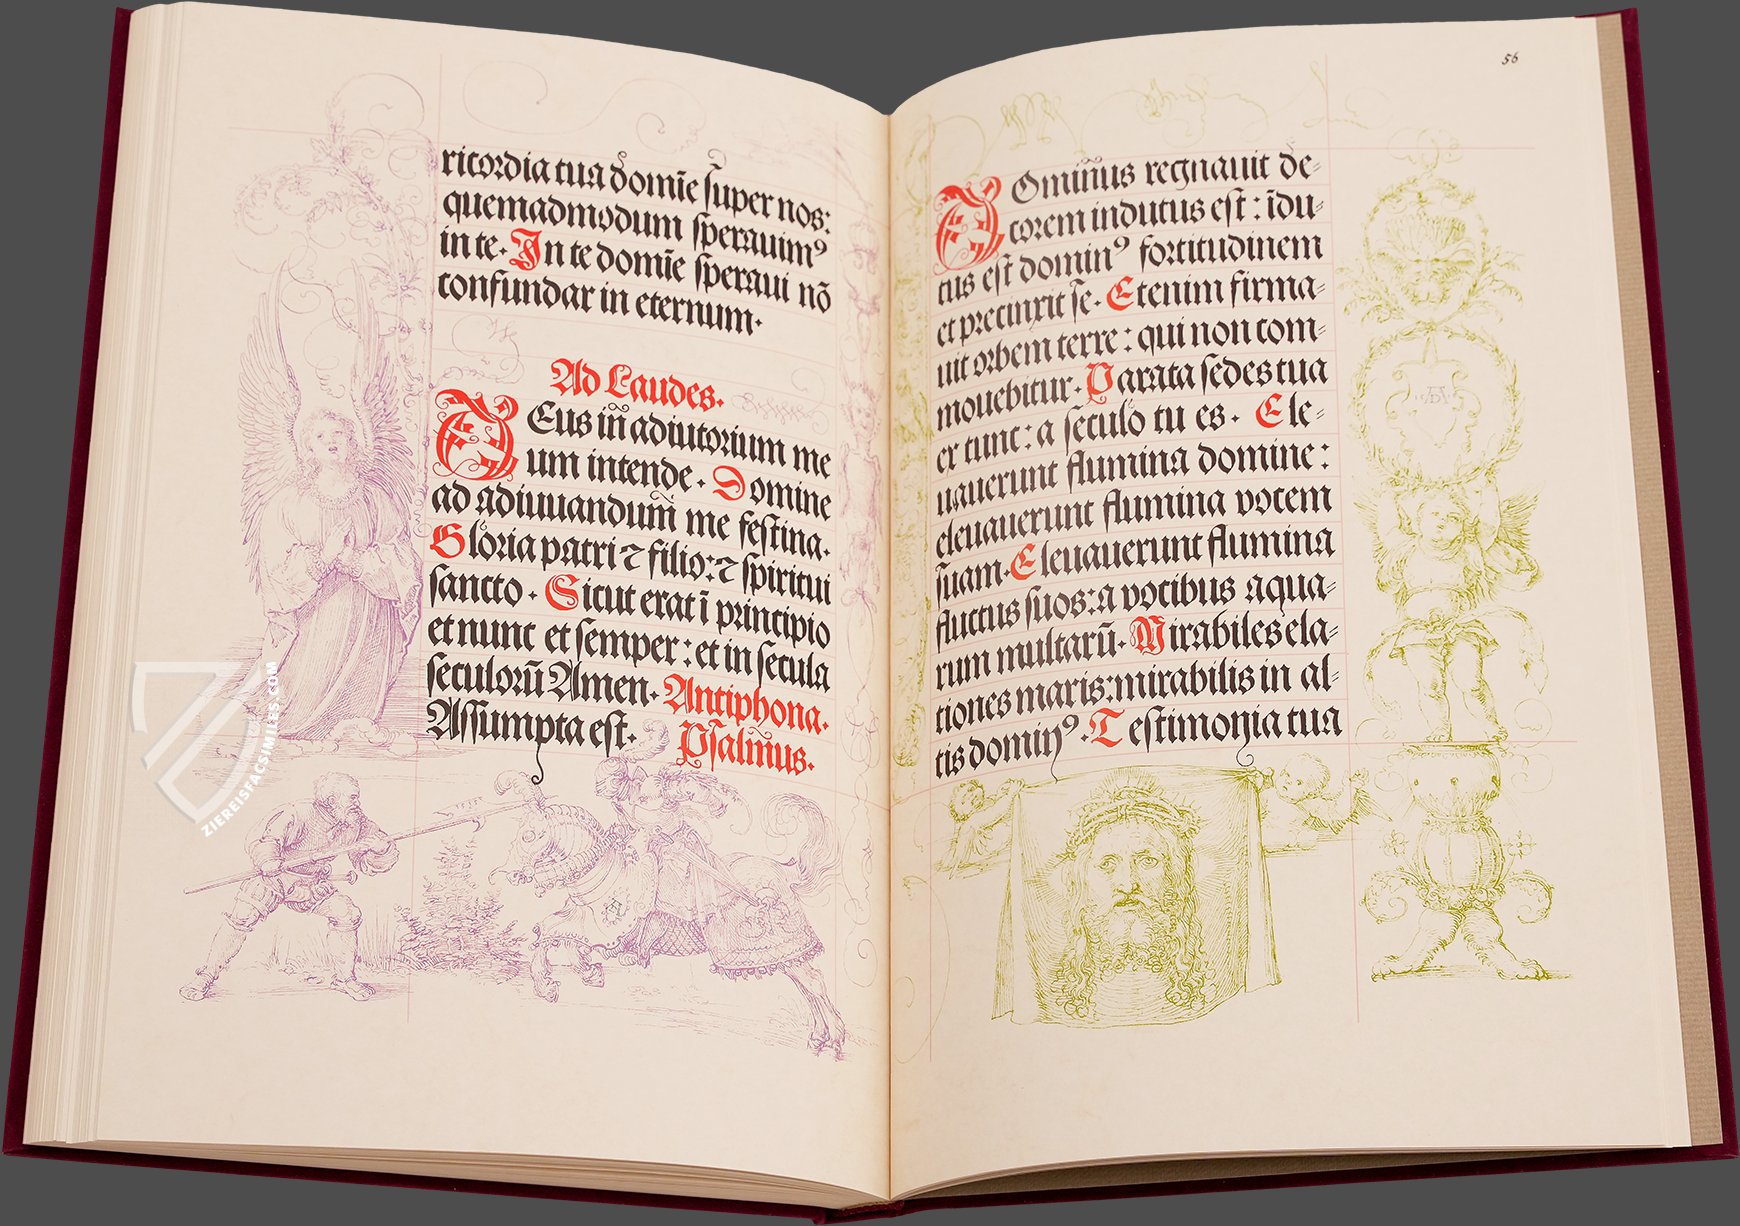 ricordia tua domīe super nos:
quemadmodum sperauimꝰ
in te. In te domīe speraui nō
confundar in eternum.
Ad Laudes.
DEus in̄ adiutorium me
um intende. Domine
ad adiuuandum̄ me festina.
Gloria patri ⁊ filio: ⁊ spiritui
sancto. Sicut erat ī principio
et nunc et semper: et in secula
seculorū Amen. Antiphona.
Assumpta est. Psalm̄us.
ZIEREISFACSIMILES.COM
56
DOmin̄us regnauit de-
corem indutus est: īdu-
tus est dominꝰ fortitudinem
et precinxit se. Etenim firma-
uit orbem terre: qui non com-
mouebitur. Parata sedes tua
ex tunc: a seculo tu es. Ele-
uauerunt flumina domine:
eleuauerunt flumina vocem
suam. Eleuauerunt flumina
fluctus suos: a vocibus aqua-
rum multarū. Mirabiles ela-
tiones maris: mirabilis in al-
tis dominꝰ. Testimonia tua